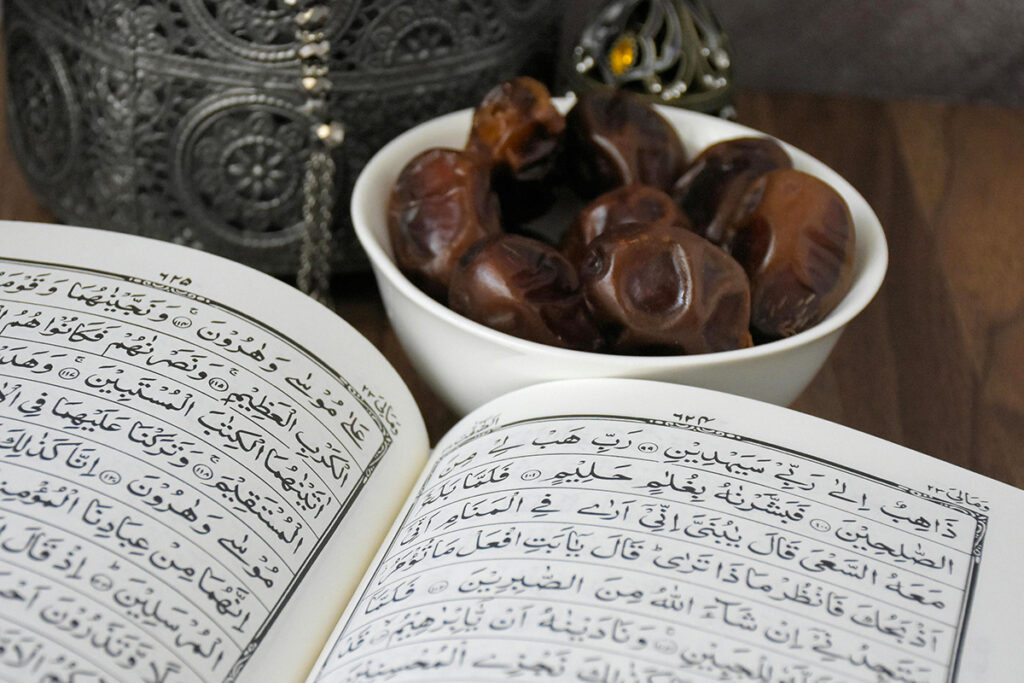 وَمَالِيَ ٢٣
٦٢٤
الصّٰٓفّٰت
ذَاهِبٌ اِلٰى رَبِّيْ سَيَهْدِيْنِ ﴿٩٩﴾ رَبِّ هَبْ لِيْ مِنَ
الصّٰلِحِيْنَ ﴿١٠٠﴾ فَبَشَّرْنٰهُ بِغُلٰمٍ حَلِيْمٍ ﴿١٠١﴾ فَلَمَّا بَلَغَ
مَعَهُ السَّعْيَ قَالَ يٰبُنَيَّ اِنِّيْٓ اَرٰى فِي الْمَنَامِ اَنِّيْٓ
اَذْبَحُكَ فَانْظُرْ مَاذَا تَرٰى ؕ قَالَ يٰٓاَبَتِ افْعَلْ مَا تُؤْمَرُ
سَتَجِدُنِيْٓ اِنْ شَآءَ اللّٰهُ مِنَ الصّٰبِرِيْنَ ﴿١٠٢﴾ فَلَمَّآ
لِلْجَبِيْنِ ﴿١٠٣﴾ وَنَادَيْنٰهُ اَنْ يّٰٓاِبْرٰهِيْمُ ﴿١٠٤﴾ قَدْ
كَذٰلِكَ نَجْزِي الْمُحْسِنِيْنَ
وَمَالِيَ ٢٣
٦٢٥
عَلٰى مُوْسٰى وَهٰرُوْنَ ﴿١١٤﴾ وَنَجَّيْنٰهُمَا وَقَوْمَ
الْكَرْبِ الْعَظِيْمِ ﴿١١٥﴾ وَنَصَرْنٰهُمْ فَكَانُوْا هُمُ
اٰتَيْنٰهُمَا الْكِتٰبَ الْمُسْتَبِيْنَ ﴿١١٧﴾ وَهَدَ
الْمُسْتَقِيْمَ ﴿١١٨﴾ وَتَرَكْنَا عَلَيْهِمَا فِي الْاٰ
مُوْسٰى وَهٰرُوْنَ ﴿١٢٠﴾ اِنَّا كَذٰلِكَ
اِنَّهُمَا مِنْ عِبَادِنَا الْمُؤْمِنِ
الْمُرْسَلِيْنَ ﴿١٢٣﴾ اِذْ قَالَ
وَّتَذَرُوْنَ اَحْ